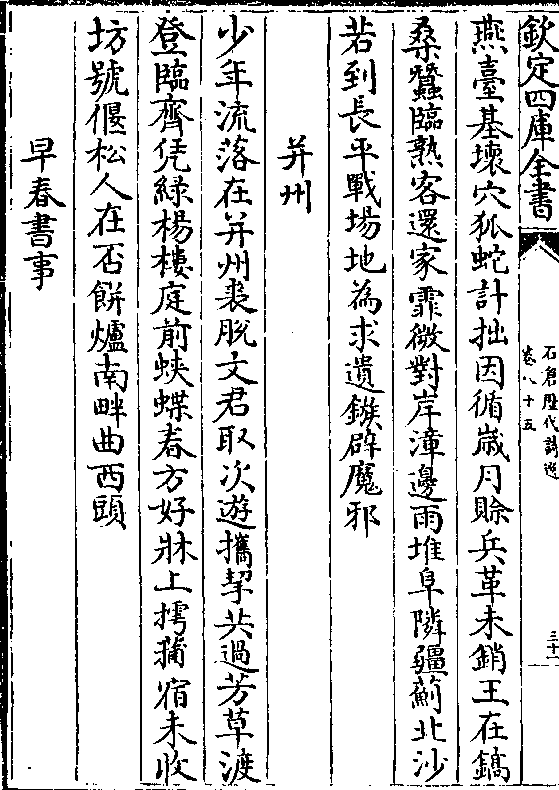 欽定四庫全書
石倉歴代詩選
卷八十五
三十一
燕臺基壞穴狐蛇計拙因循歲月賒兵革未銷王在鎬
桑蠶臨熟客還家霏微對岸漳邊雨堆阜隣疆薊北沙
若到長平戰場地為求遺鏃辟魔邪
并州
少年流落在并州裘脫文君取次遊攜挈共過芳草渡
登臨齊凭緑楊樓庭前蛺蝶春方好牀上摴蒱宿未收
坊號偃松人在否餅爐南畔曲西頭
早春書事